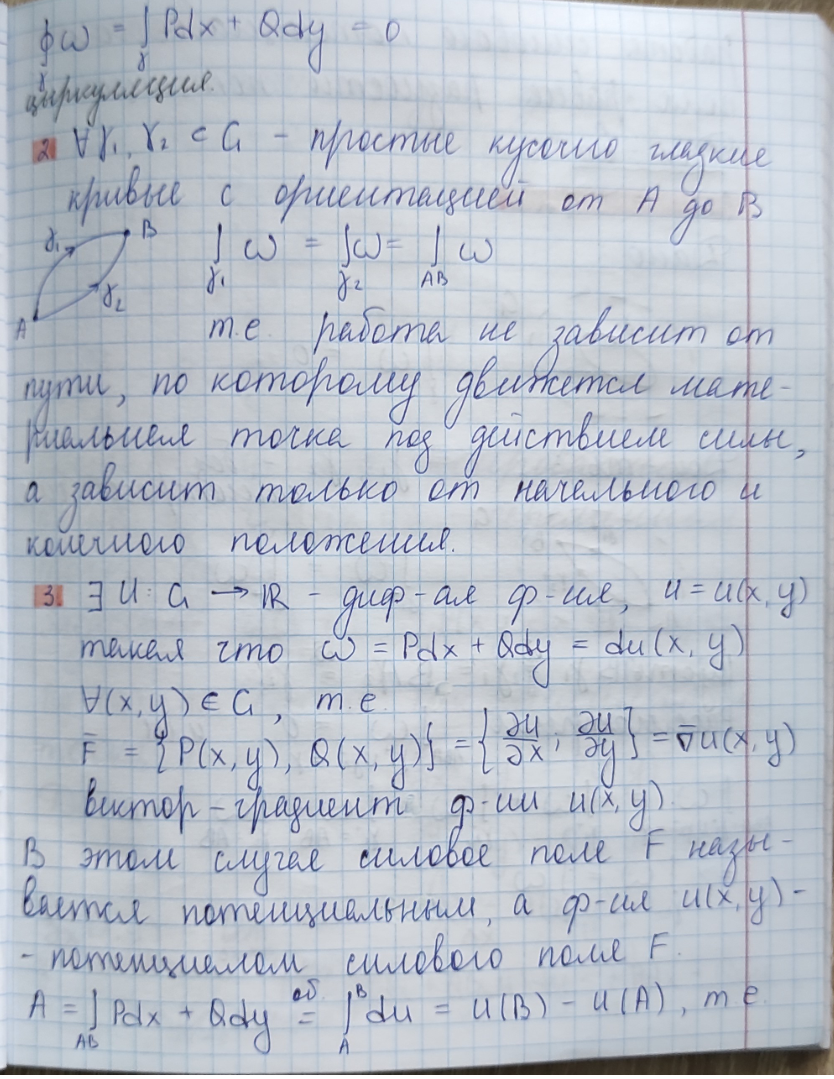 ∮_γ ω = ∫_γ Pdx + Qdy = 0
циркуляция.
2. ∀γ₁, γ₂ ⊂ G - простые кусочно гладкие
кривые с ориентацией от A до B
γ₁ B A γ₂ ∫_γ₁ ω = ∫_γ₂ ω = ∫_AB ω
т.е. работа не зависит от
пути, по которому движется мате-
риальная точка под действием силы,
а зависит только от начального и
конечного положения.
3. ∃ U: G → ℝ - диф-ая ф-ия, u = u(x, y)
такая что ω = Pdx + Qdy = du(x, y)
∀(x, y) ∈ G, т.е.
F̄ = {P(x, y), Q(x, y)} = {∂u/∂x ; ∂u/∂y} = ∇̄u(x, y)
вектор-градиент ф-ии u(x, y).
В этом случае силовое поле F назы-
вается потенциальным, а ф-ия u(x, y) -
- потенциалом силового поля F.
A = ∫_AB Pdx + Qdy = ∫_A^B du = u(B) - u(A), т.е.